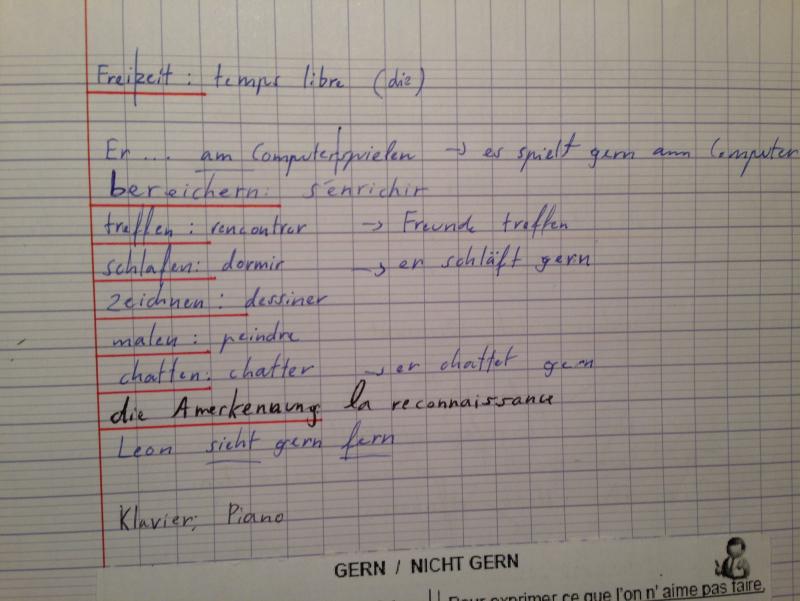 Freizeit : temps libre (die)
Er ... am Computerspielen → es spielt gern am Computer
bereichern: s'enrichir
treffen : rencontrer → Freunde treffen
schlafen: dormir → er schläft gern
zeichnen : dessiner
malen : peindre
chatten: chatter → er chattet gern
die Amerkennung la reconnaissance
Leon sieht gern fern
Klavier: Piano
GERN / NICHT GERN
Pour exprimer ce que l'on n' aime pas faire,